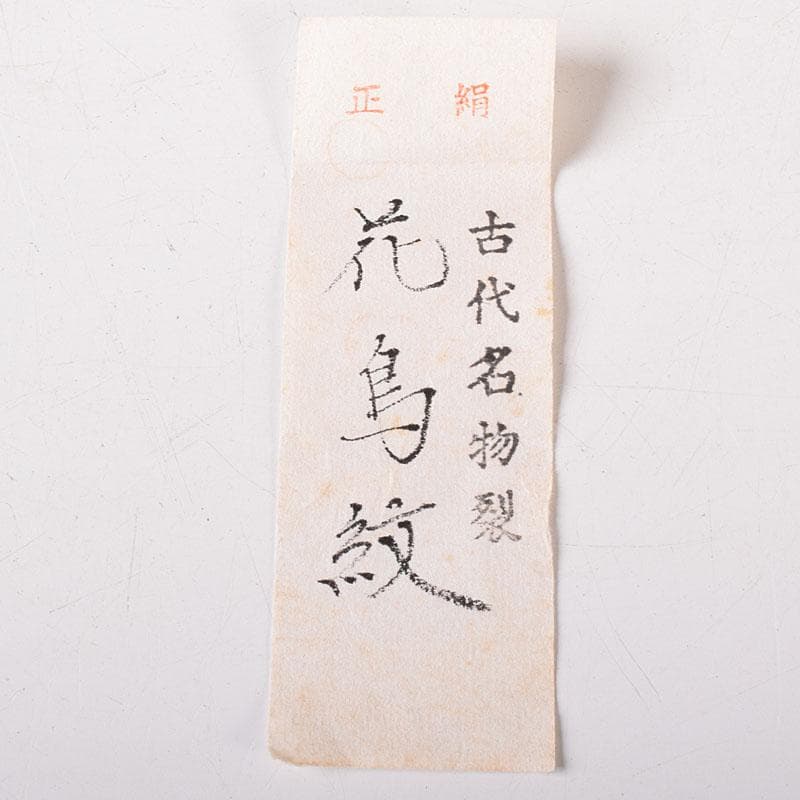 正絹
古代名物裂
花鳥紋